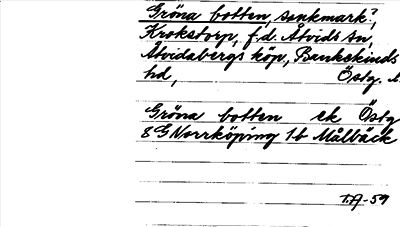 Gröna botten, sankmark?,
Krokstorp, f.d. Åtvids sn,
Åtvidabergs köp., Bankekinds
hd, Östg. l.
Gröna botten ek Östg
8 G Norrköping 1b Målbäck
T.A-59